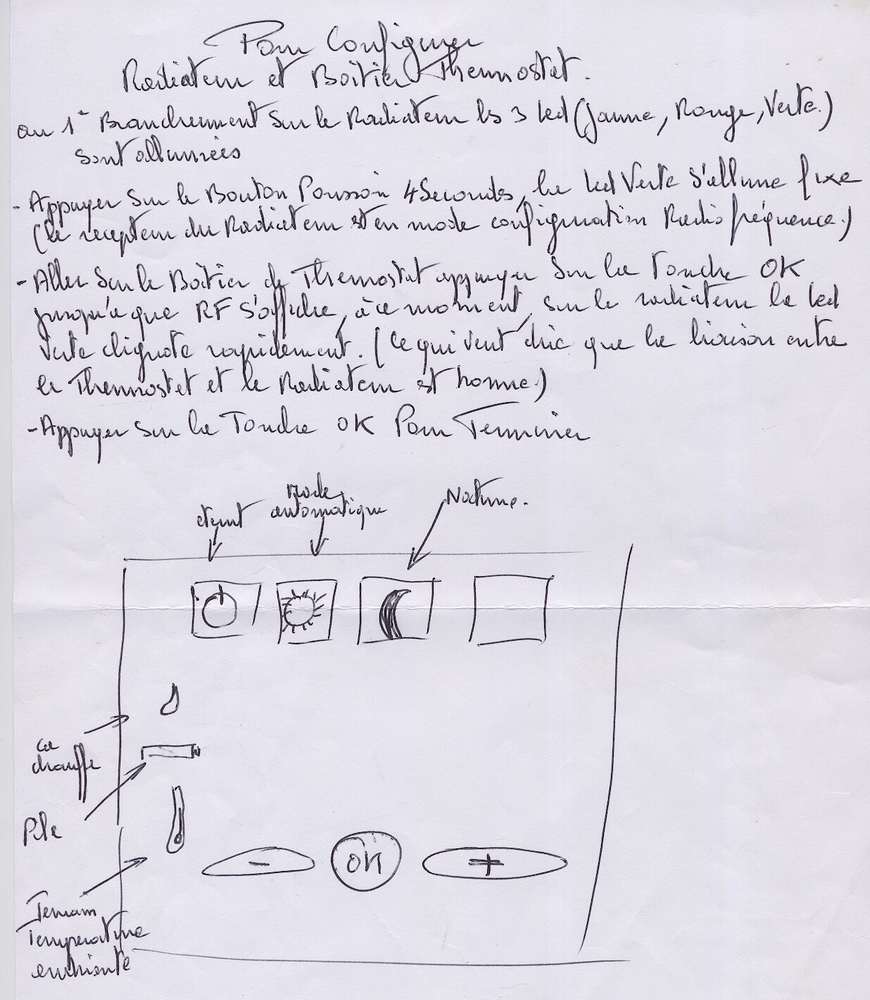 Pour Configurer
Radiateur et Boîtier Thermostat.
au 1er Branchement sur le Radiateur les 3 led (Jaune, Rouge, Verte)
sont allumées
- Appuyer sur le Bouton Poussoir 4 Secondes, la led Verte s'allume fixe
(le recepteur du Radiateur est en mode configuration Radio fréquence)
- Aller sur le Boîtier de Thermostat appuyer sur la Touche OK
jusqu'a que RF s'affiche, à ce moment, sur le radiateur la led
verte clignote rapidement. (ce qui veut dire que la liaison entre
le Thermostat et le Radiateur est bonne)
- Appuyer sur la Touche OK Pour Terminer
éteint
mode
automatique
Nocturne.
ça
chauffe
Pile
Température
ambiante
-
OK
+